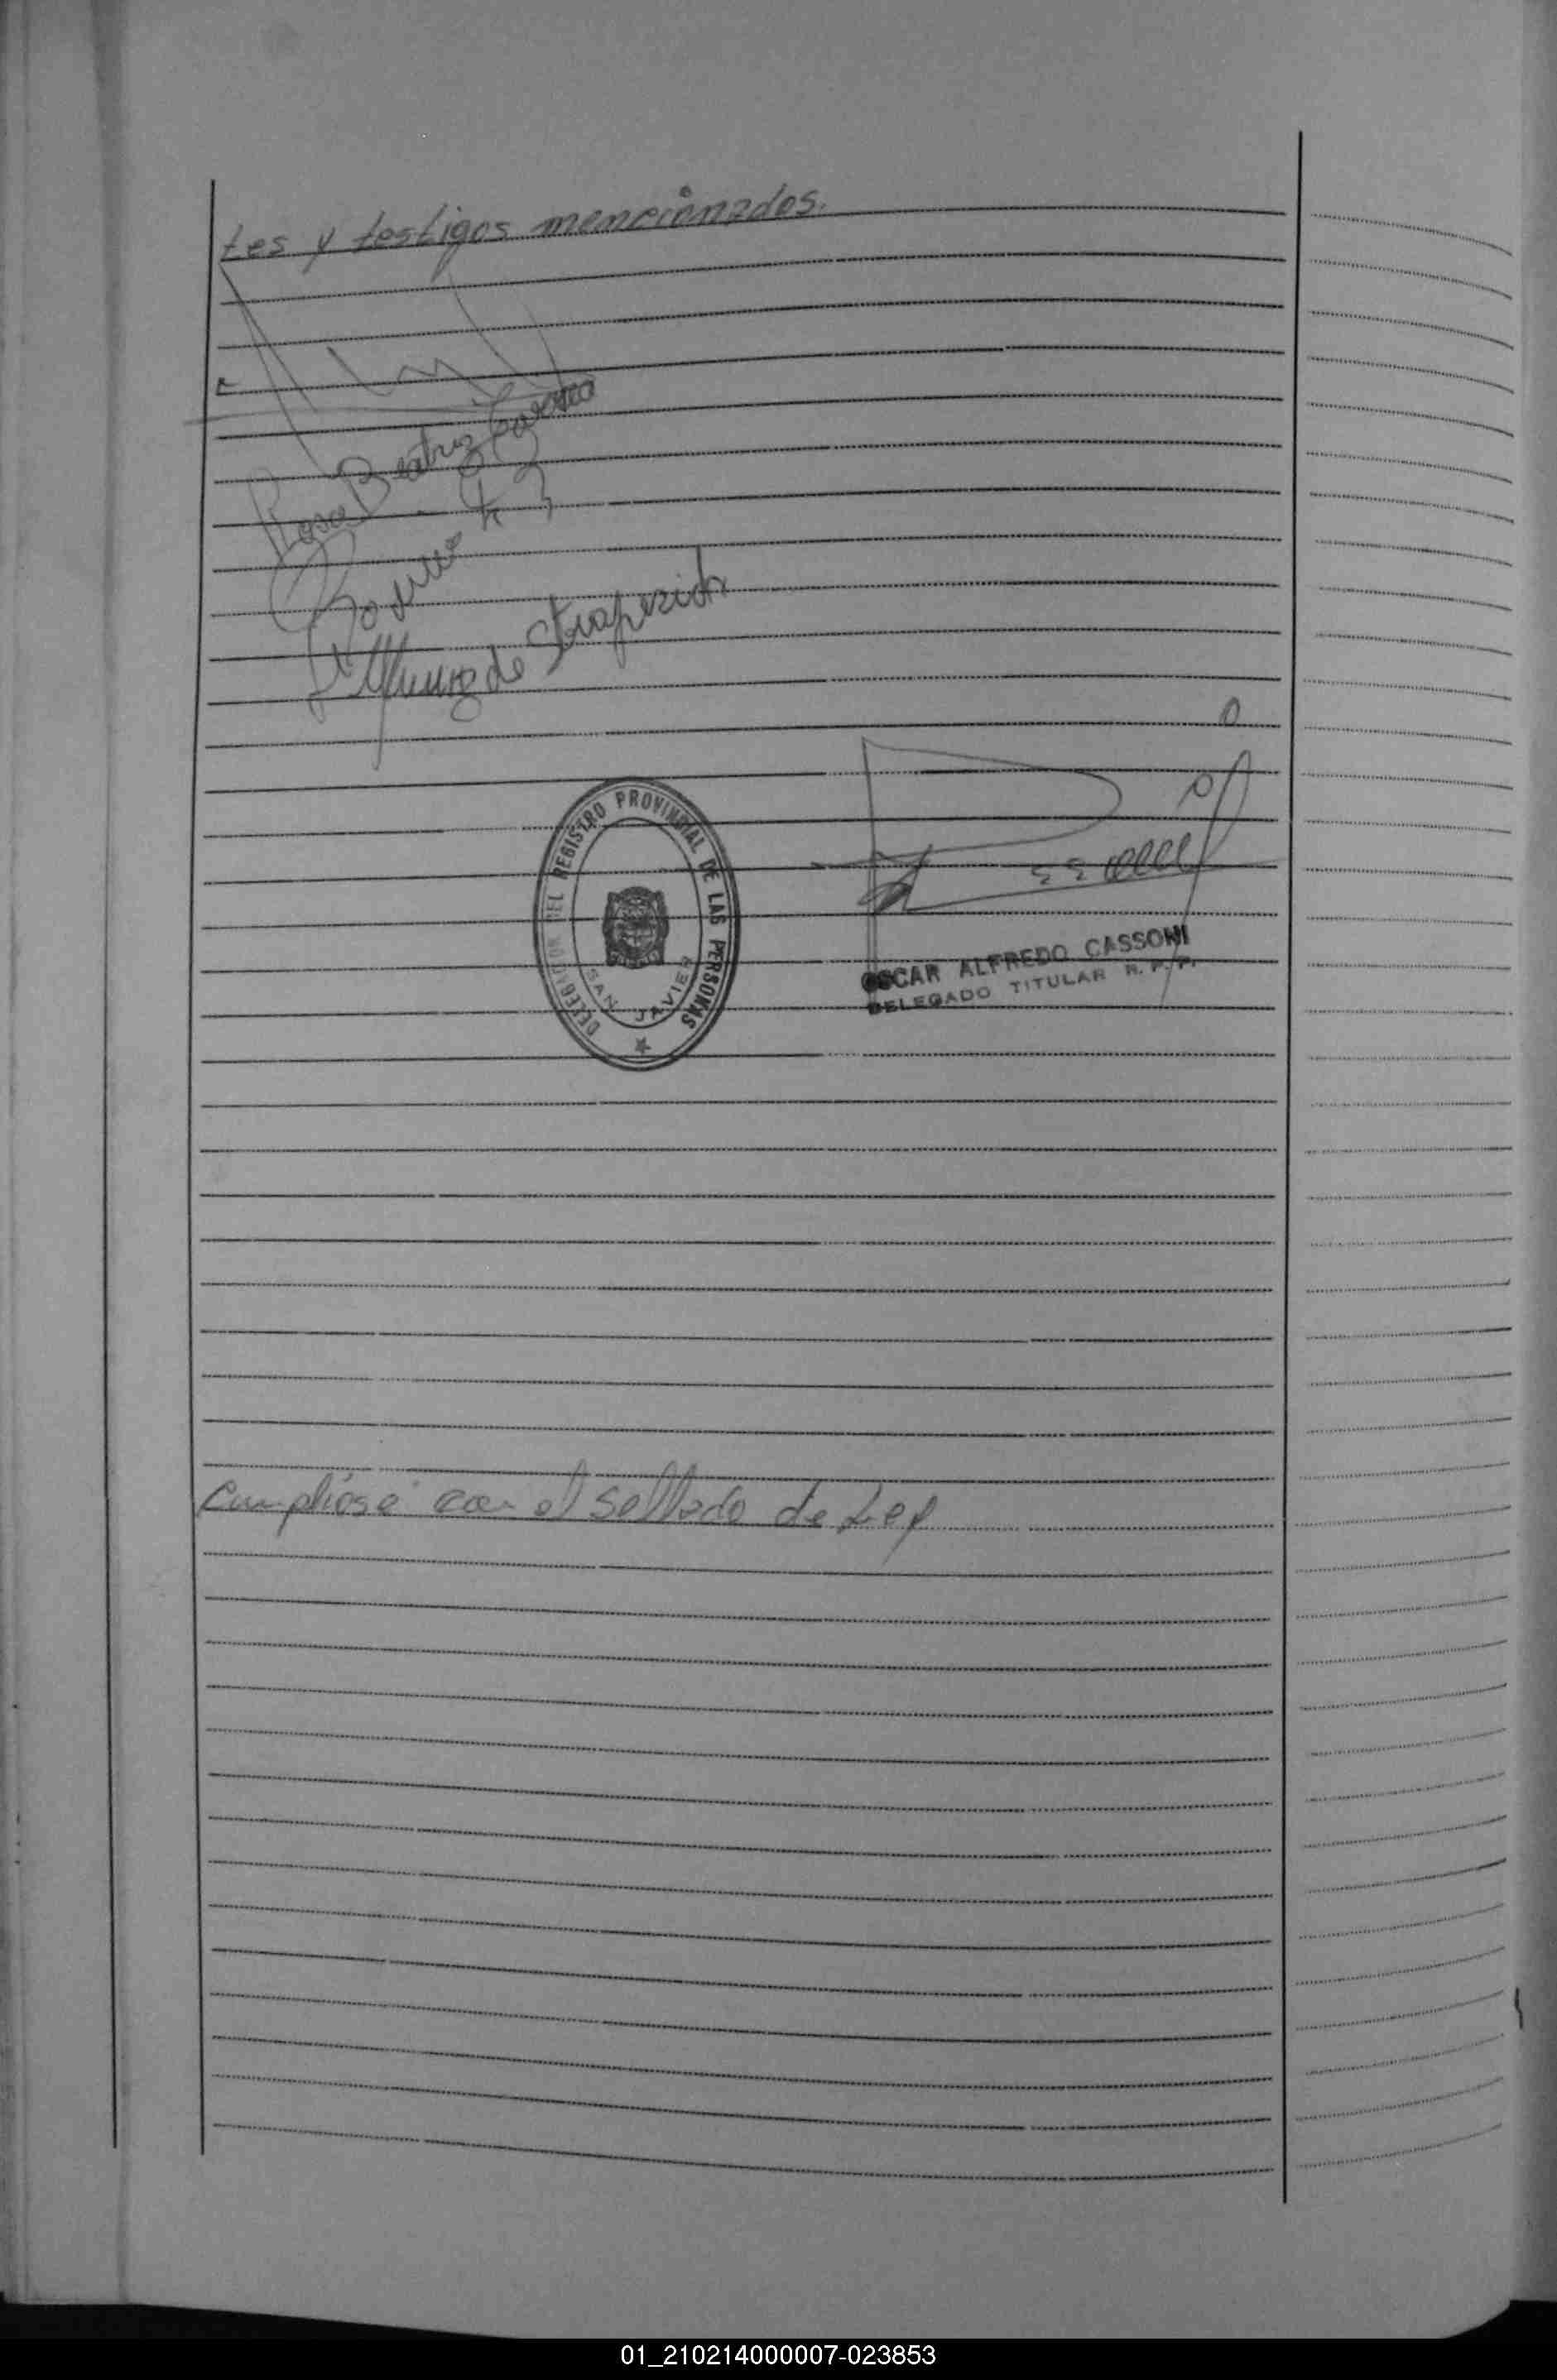 tes y testigos mencionados.
Rosa Beatriz
de
DELEGACION DEL REGISTRO PROVINCIAL DE LAS PERSONAS
SAN JAVIER
OSCAR ALFREDO CASSONI
DELEGADO TITULAR R. P. P.
Cumplióse con el sellado de Ley
01_210214000007-023853